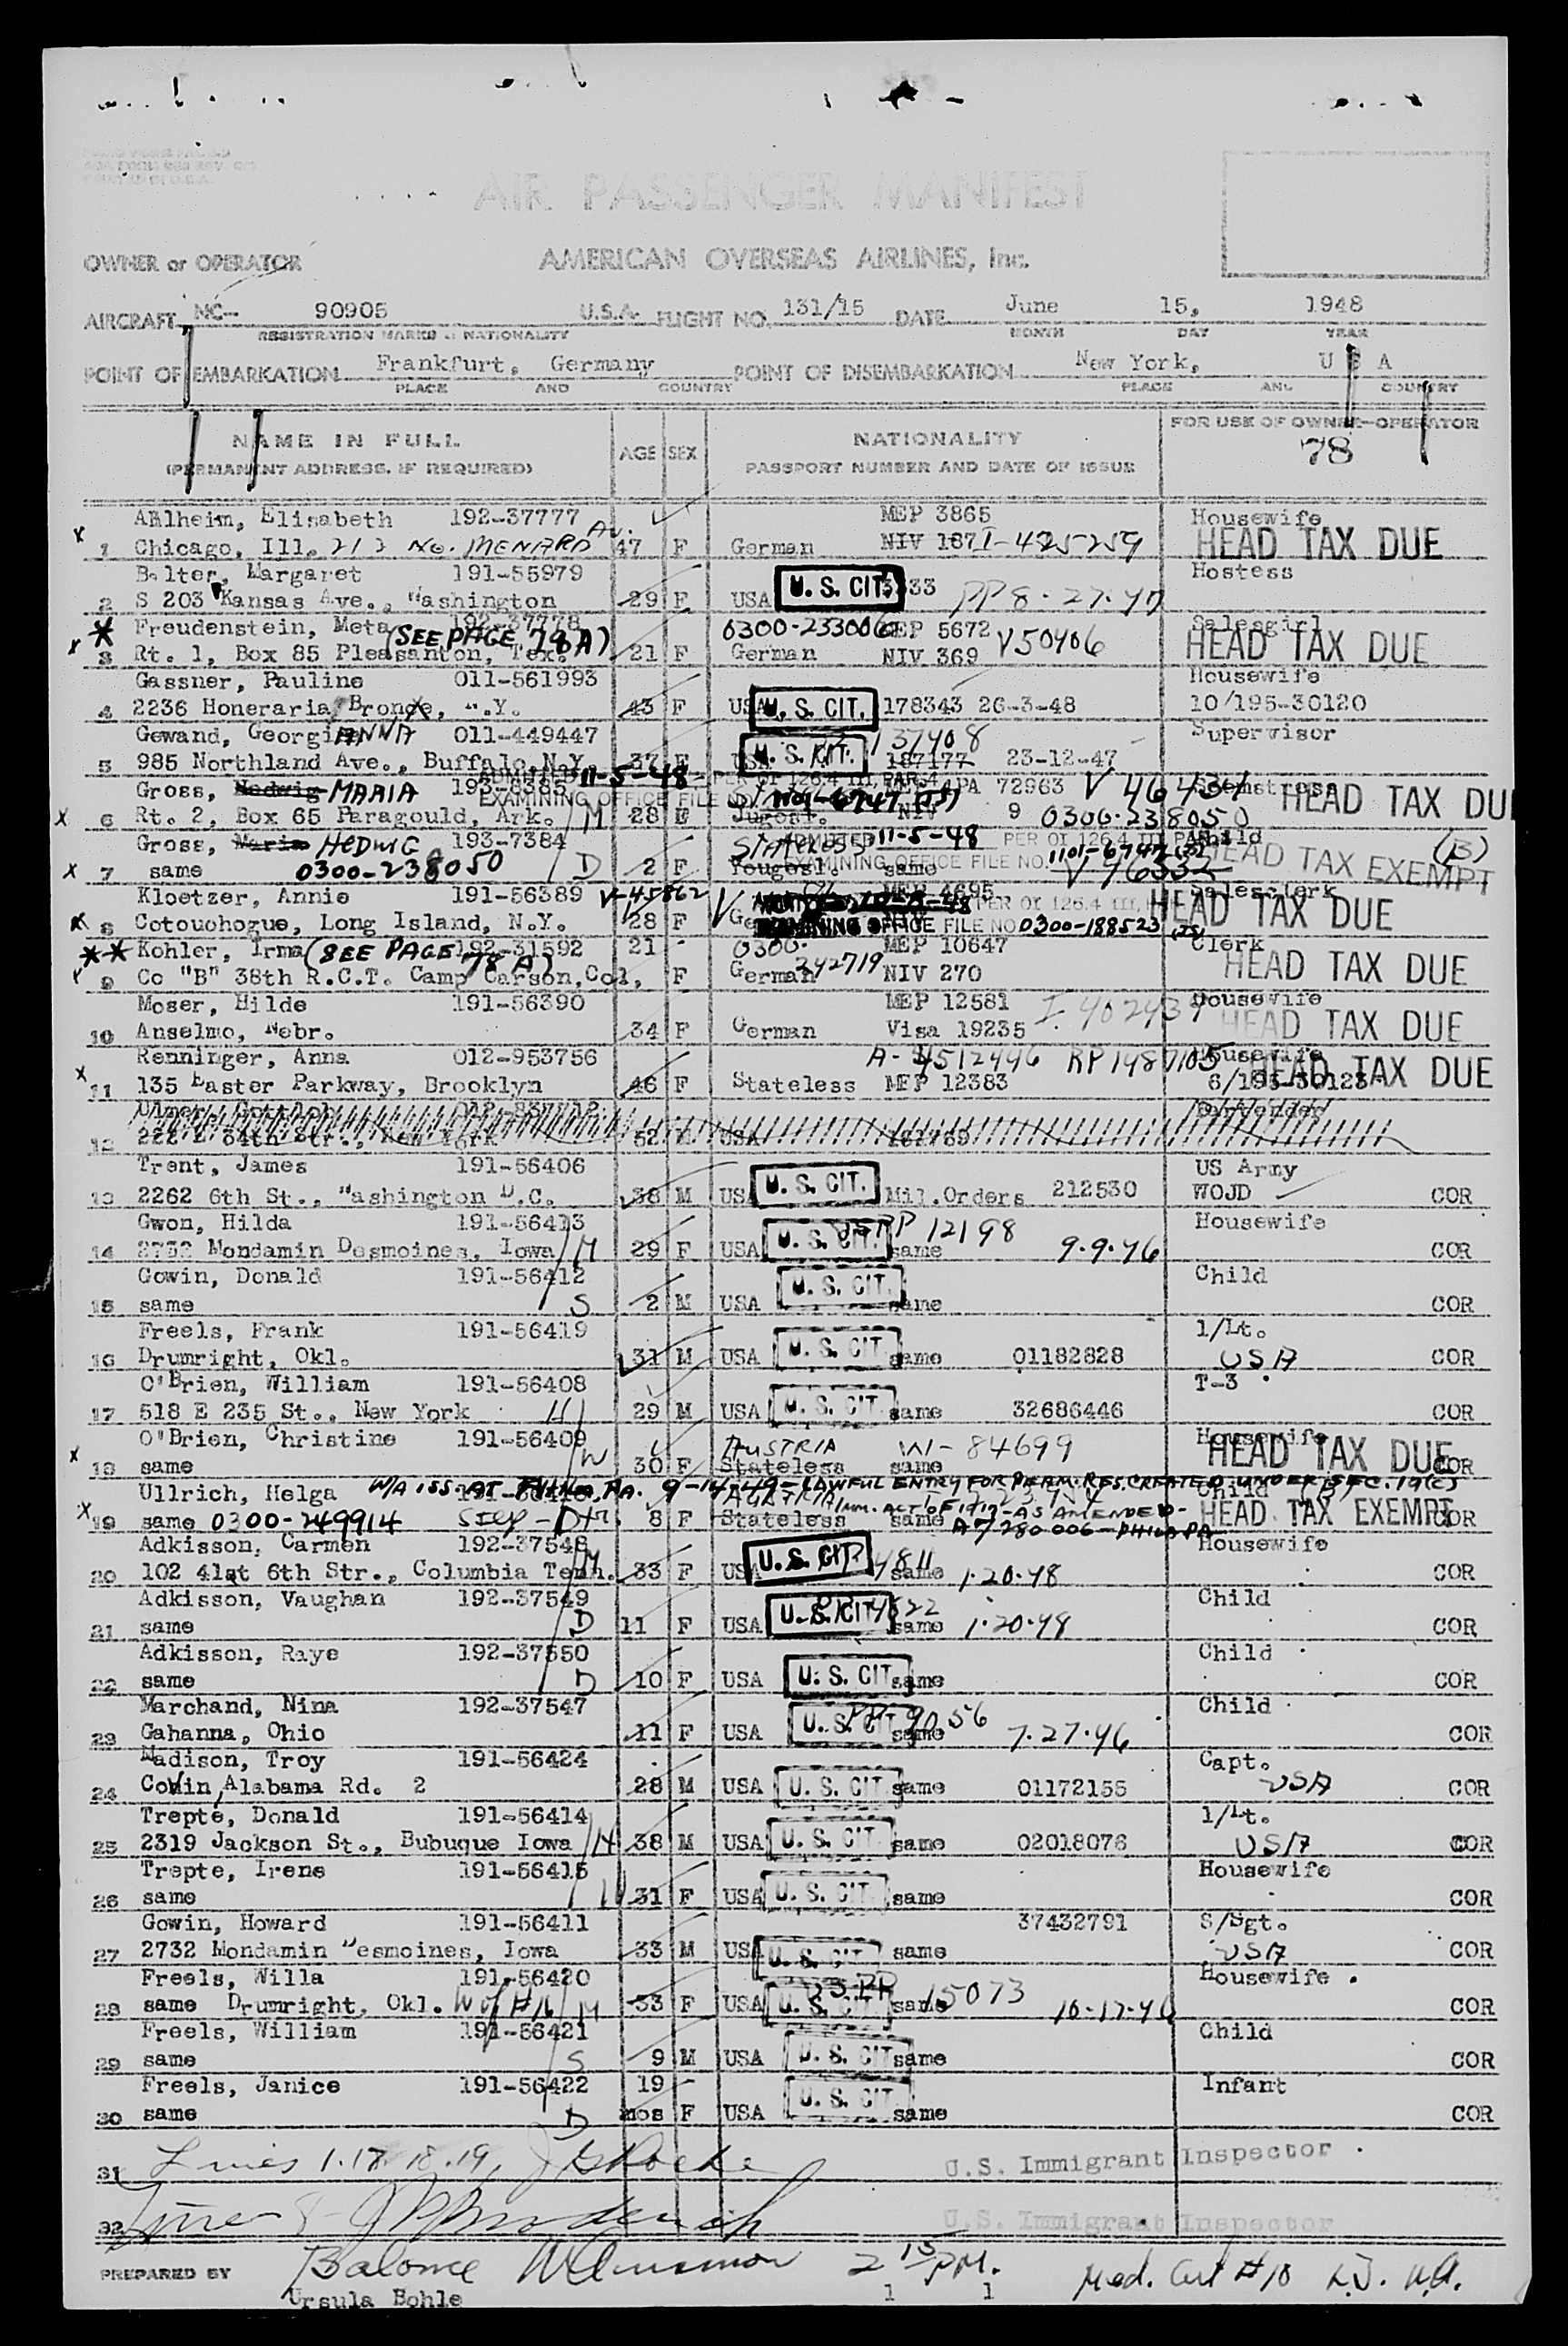 AIR PASSENGER MANIFEST
OWNER or OPERATOR AMERICAN OVERSEAS AIRLINES, Inc.
AIRCRAFT NC- 90905 U.S.A. FLIGHT NO. 131/15 DATE June 15, 1948
REGISTRATION MARKS & NATIONALITY MONTH DAY YEAR
POINT OF EMBARKATION Frankfurt, Germany POINT OF DISEMBARKATION New York, U S A
PLACE AND COUNTRY PLACE AND COUNTRY
NAME IN FULL AGE SEX NATIONALITY FOR USE OF OWNER-OPERATOR
(PERMANENT ADDRESS, IF REQUIRED) PASSPORT NUMBER AND DATE OF ISSUE 78
Ahlheim, Elisabeth 192-37777 MEP 3865 Housewife
x 1 Chicago, Ill. 212 No. MENARD Av. 47 F German NIV 167 I-425259 HEAD TAX DUE
Bolter, Margaret 191-55979 Hostess
2 S 203 Kansas Ave., Washington 29 F USA U. S. CIT. PP 8-27-47
Freudenstein, Meta 192-37778 (SEE PAGE 78A) 0300-233006 MEP 5672 V50406 Salesgirl
x 3 Rt. 1, Box 85 Pleasanton, Tex. 21 F German NIV 369 HEAD TAX DUE
Gassner, Pauline 011-561993 Housewife
4 2236 Honeraria, Bronx, N.Y. 43 F USA U. S. CIT. 178343 26-3-48 10/195-30120
Gewand, GeorgiANNA 011-449447 137408 Supervisor
5 985 Northland Ave., Buffalo,N.Y. 37 F USA U. S. CIT. 187177 23-12-47
ADMITTED 11-5-48 PER OI 126.4 III, PAR. 4
EXAMINING OFFICE FILE NO. 1101-6747
Gross, Hedwig MARIA 193-8385 72963 V 464 Seamstress HEAD TAX DUE
x 6 Rt. 2, Box 65 Paragould, Ark. M 28 F Jugosl. NIV 9 0300-238050
Gross, Maria HEDWIG 193-7384 STATELESS ADMITTED 11-5-48 PER OI 126.4 III PAR. Child (B)
x 7 same 0300-238050 D 2 F Yougosl. same EXAMINING OFFICE FILE NO. HEAD TAX EXEMPT
Kloetzer, Annie 191-56389 V-45862 MEP 4695 Salesclerk
x 8 Cotouchogue, Long Island, N.Y. 28 F EXAMINING OFFICE FILE NO 0300-188523 HEAD TAX DUE
** Kohler, Irma (SEE PAGE 78 A) 192-31592 21 0300-242719 MEP 10647 Clerk
9 Co "B" 38th R.C.T. Camp Carson,Col, F German NIV 270 HEAD TAX DUE
Moser, Hilde 191-56390 MEP 12581 I-402434 Housewife
10 Anselmo, Nebr. 34 F German Visa 19235 HEAD TAX DUE
Renninger, Anna 012-953756 A-4512446 RP 1487105 Housewife
x 11 135 Easter Parkway, Brooklyn 46 F Stateless MEP 12383 6/195-30123 HEAD TAX DUE
12 222 E 34th Str., New York 52 M USA Bartender
Trent, James 191-56406 US Army
13 2262 6th St., Washington D.C. 38 M USA U. S. CIT. Mil.Orders 212530 WOJD COR
Gwon, Hilda 191-56413 PP 12198 Housewife
14 2732 Mondamin Desmoines, Iowa M 29 F USA U. S. CIT. same 9-9-46 COR
Gowin, Donald 191-56412 Child
15 same S 2 M USA U. S. CIT. same COR
Freels, Frank 191-56419 1/Lt.
16 Drumright, Okl. 31 M USA U. S. CIT. same 01182828 USA COR
O'Brien, William 191-56408 T-3
17 518 E 235 St., New York H 29 M USA U. S. CIT. same 32686446 COR
O'Brien, Christine 191-56409 AUSTRIA 84699 Housewife
x 18 same W 30 F Stateless same HEAD TAX DUE COR
Ullrich, Helga W/A ISS. AT PHILA, PA. 9-14-49-LAWFUL ENTRY FOR PERM. RES. CREATED UNDER SEC. 19(c)
AUSTRIA IMM. ACT OF 1917-AS AMENDED- Child
x 19 same 0300-249914 Step-Dtr. 8 F Stateless same A7280006-PHILA PA HEAD TAX EXEMPT COR
Adkisson, Carmen 192-37548 4811 Housewife
20 102 41st 6th Str., Columbia Tenn. M 33 F USA U. S. CIT. same 1-20-48 COR
Adkisson, Vaughan 192-37549 Child
21 same D 11 F USA U. S. CIT. same 1-20-48 COR
Adkisson, Raye 192-37550 Child
22 same D 10 F USA U. S. CIT. same COR
Marchand, Nina 192-37547 PP 9056 Child
23 Gahanna, Ohio 11 F USA U. S. CIT. same 7-27-46 COR
Madison, Troy 191-56424 Capt.
24 Covin, Alabama Rd. 2 28 M USA U. S. CIT. same 01172155 USA COR
Trepte, Donald 191-56414 1/Lt.
25 2319 Jackson St., Bubuque Iowa H 38 M USA U. S. CIT. same 02018076 USA COR
Trepte, Irene 191-56415 Housewife
26 same W 31 F USA U. S. CIT. same COR
Gowin, Howard 191-56411 37432791 S/Sgt.
27 2732 Mondamin Desmoines, Iowa 33 M USA U. S. CIT. same USA COR
Freels, Willa 191-56420 PP 15073 Housewife
28 same Drumright, Okl. W of #16 M 33 F USA U. S. CIT. same COR
Freels, William 191-56421 Child
29 same S 9 M USA U. S. CIT. same COR
Freels, Janice 191-56422 19 Infant
30 same D mos F USA U. S. CIT. same COR
31 Lines 1. 17. 18. 19, U.S. Immigrant Inspector
32 Lines 8 U.S. Immigrant Inspector
PREPARED BY Balance 2 15 PM. Med. Cert #18
Ursula Bohle 1 1